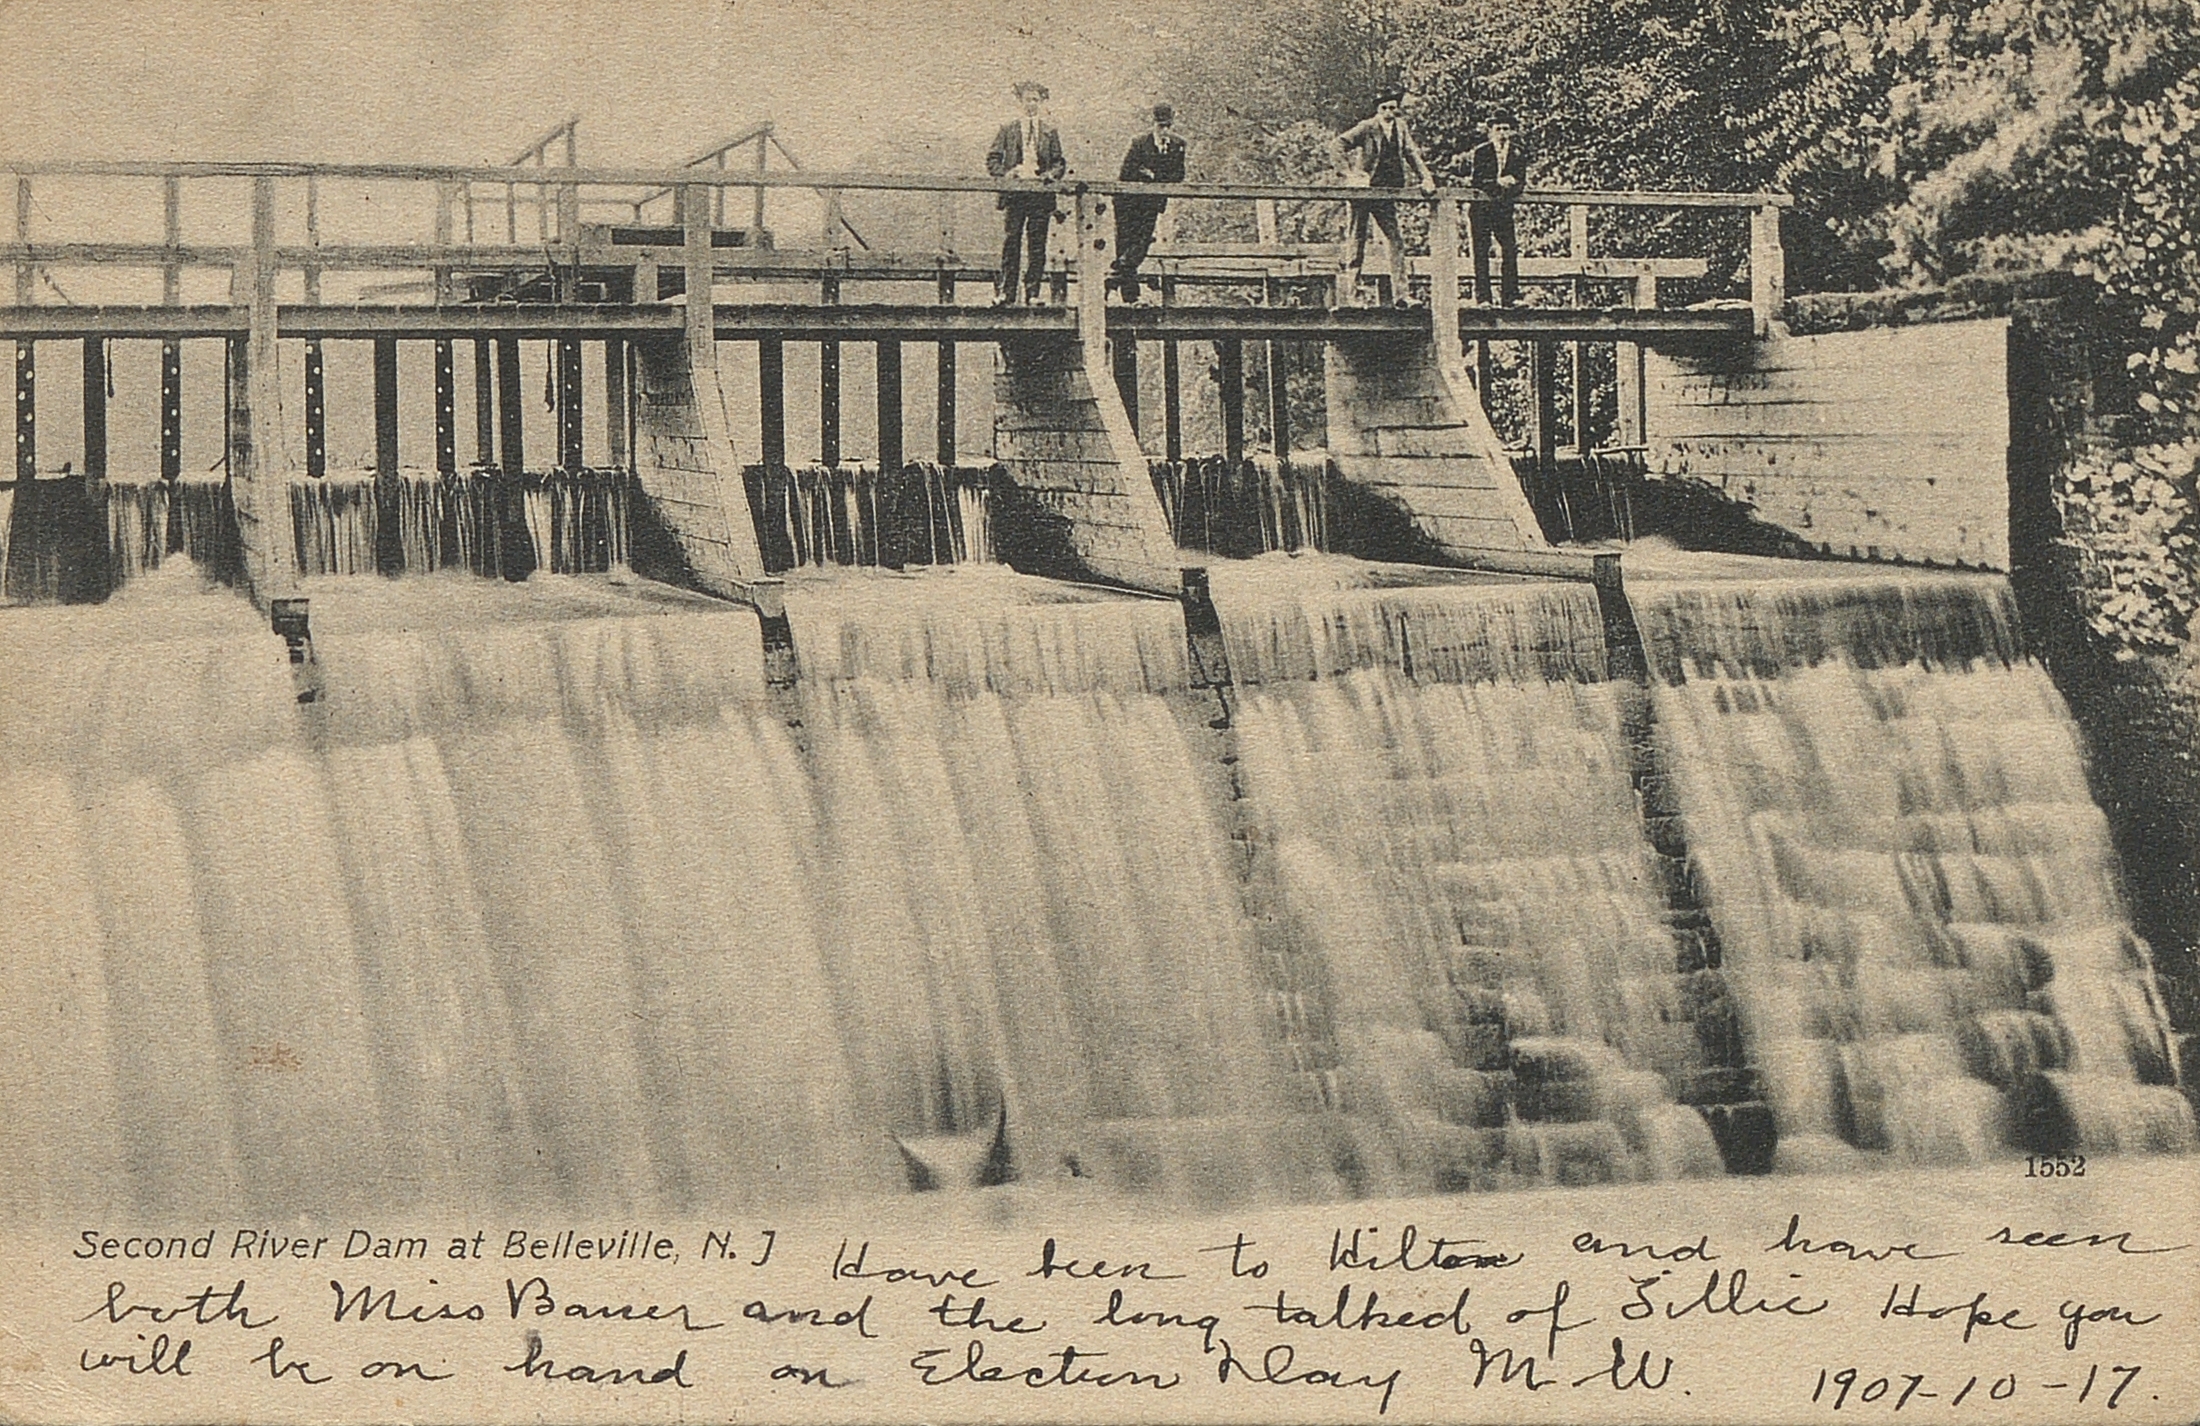 1552
Second River Dam at Belleville, N. J
Have been to Hilton and have seen
both Miss Bauer and the long talked of Lillie Hope you
will be on hand on Election Day M. W. 1907-10-17.